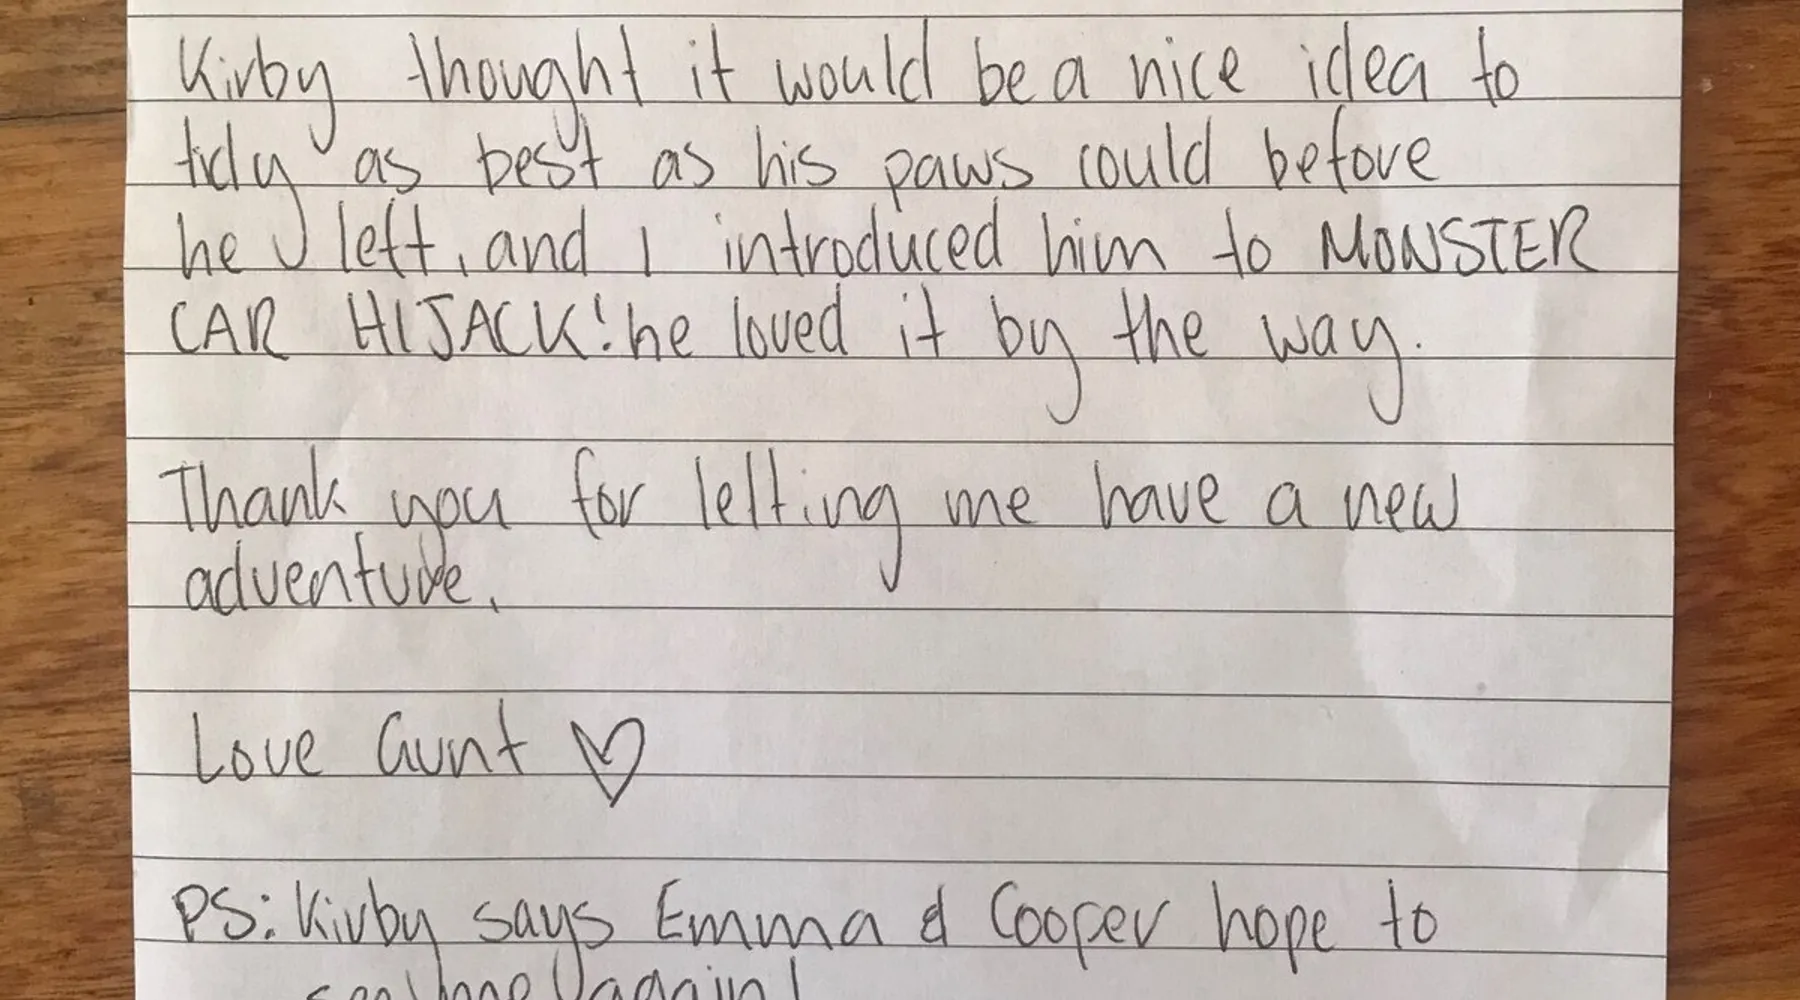 Kirby thought it would be a nice idea to
tidy as best as his paws could before
he left, and I introduced him to MONSTER
CAR HIJACK! he loved it by the way.
Thank you for letting me have a new
adventure.
Love Aunt ♡
PS: Kirby says Emma & Cooper hope to
again!